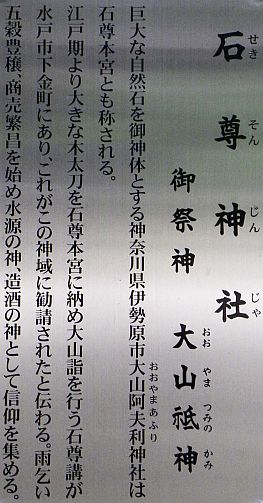 石尊神社
せきそんじんじゃ
御祭神 大山祗神
おおやまつみのかみ
巨大な自然石を御神体とする神奈川県伊勢原市大山阿夫利神社は
おおやまあふり
石尊本宮とも称される。
江戸期より大きな木太刀を石尊本宮に納め大山詣を行う石尊講が
水戸市下金町にあり、これがこの神域に勧請されたと伝わる。雨乞い
五穀豊穣、商売繁昌を始め水源の神、造酒の神として信仰を集める。